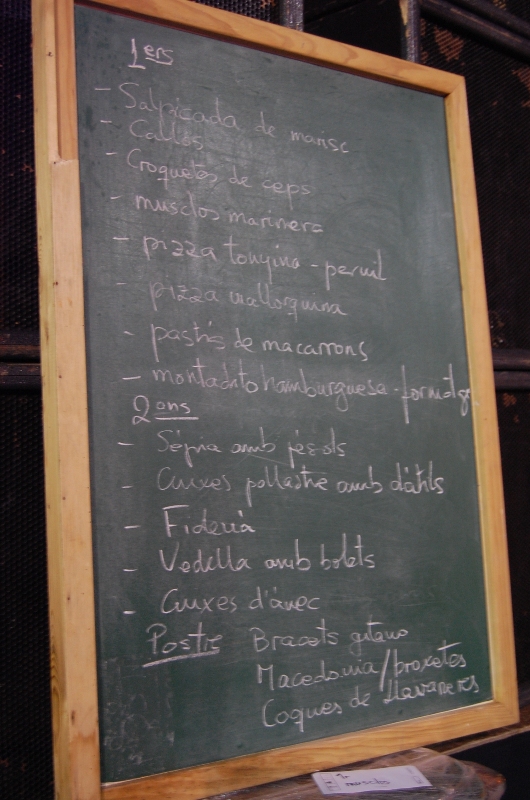 1ers
- Salpicada de marisc
- Callos
- Croquetes de ceps
- musclos marinera
- pizza tonyina - pernil
- pizza mallorquina
- pastís de macarrons
- montadito hamburguesa - formatge
2ons
- Sépia amb pèsols
- Cuixes pollastre amb dàtils
- Fideuà
- Vedella amb bolets
- Cuixes d'ànec
Postre Bracets gitano
Macedonia/broxetes
Coques de Llavaneres
musclos